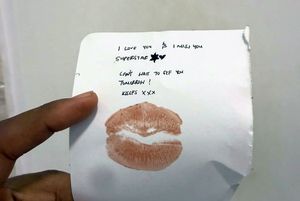 I LOVE YOU & I MISS YOU
SUPERSTAR
CAN'T WAIT TO SEE YOU
TOMORROW!
XXX